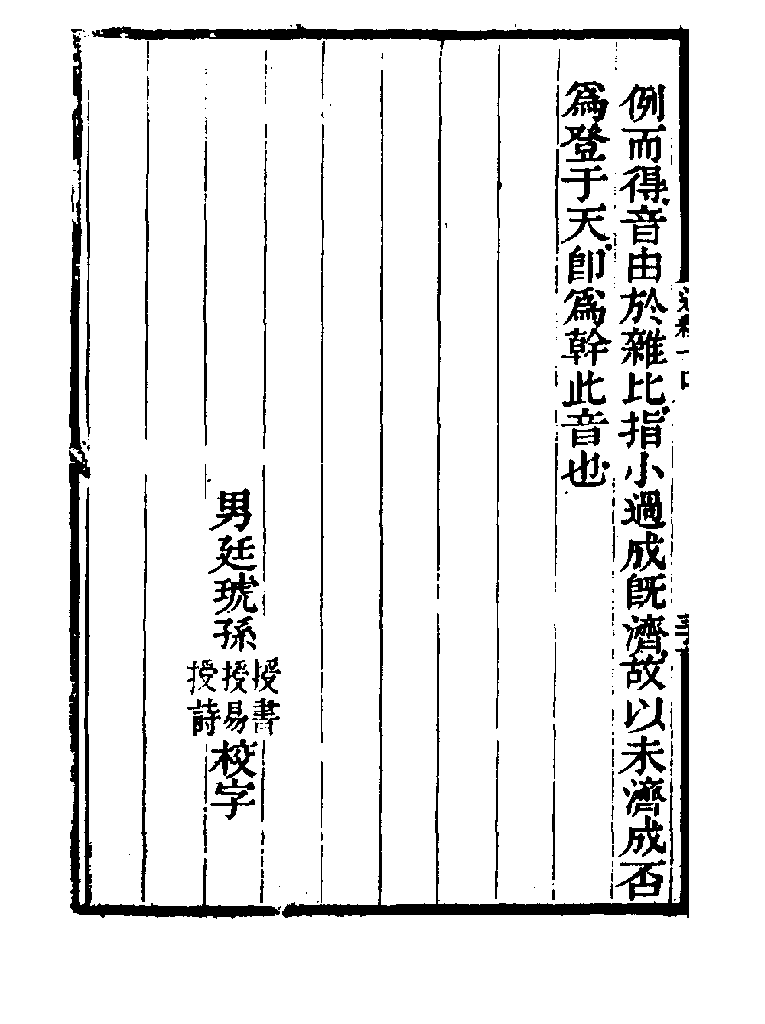 例而得音由於雜比指小過成旣濟故以未濟成否
爲登于天卽爲幹此音也
男廷琥孫授書授易授詩校字